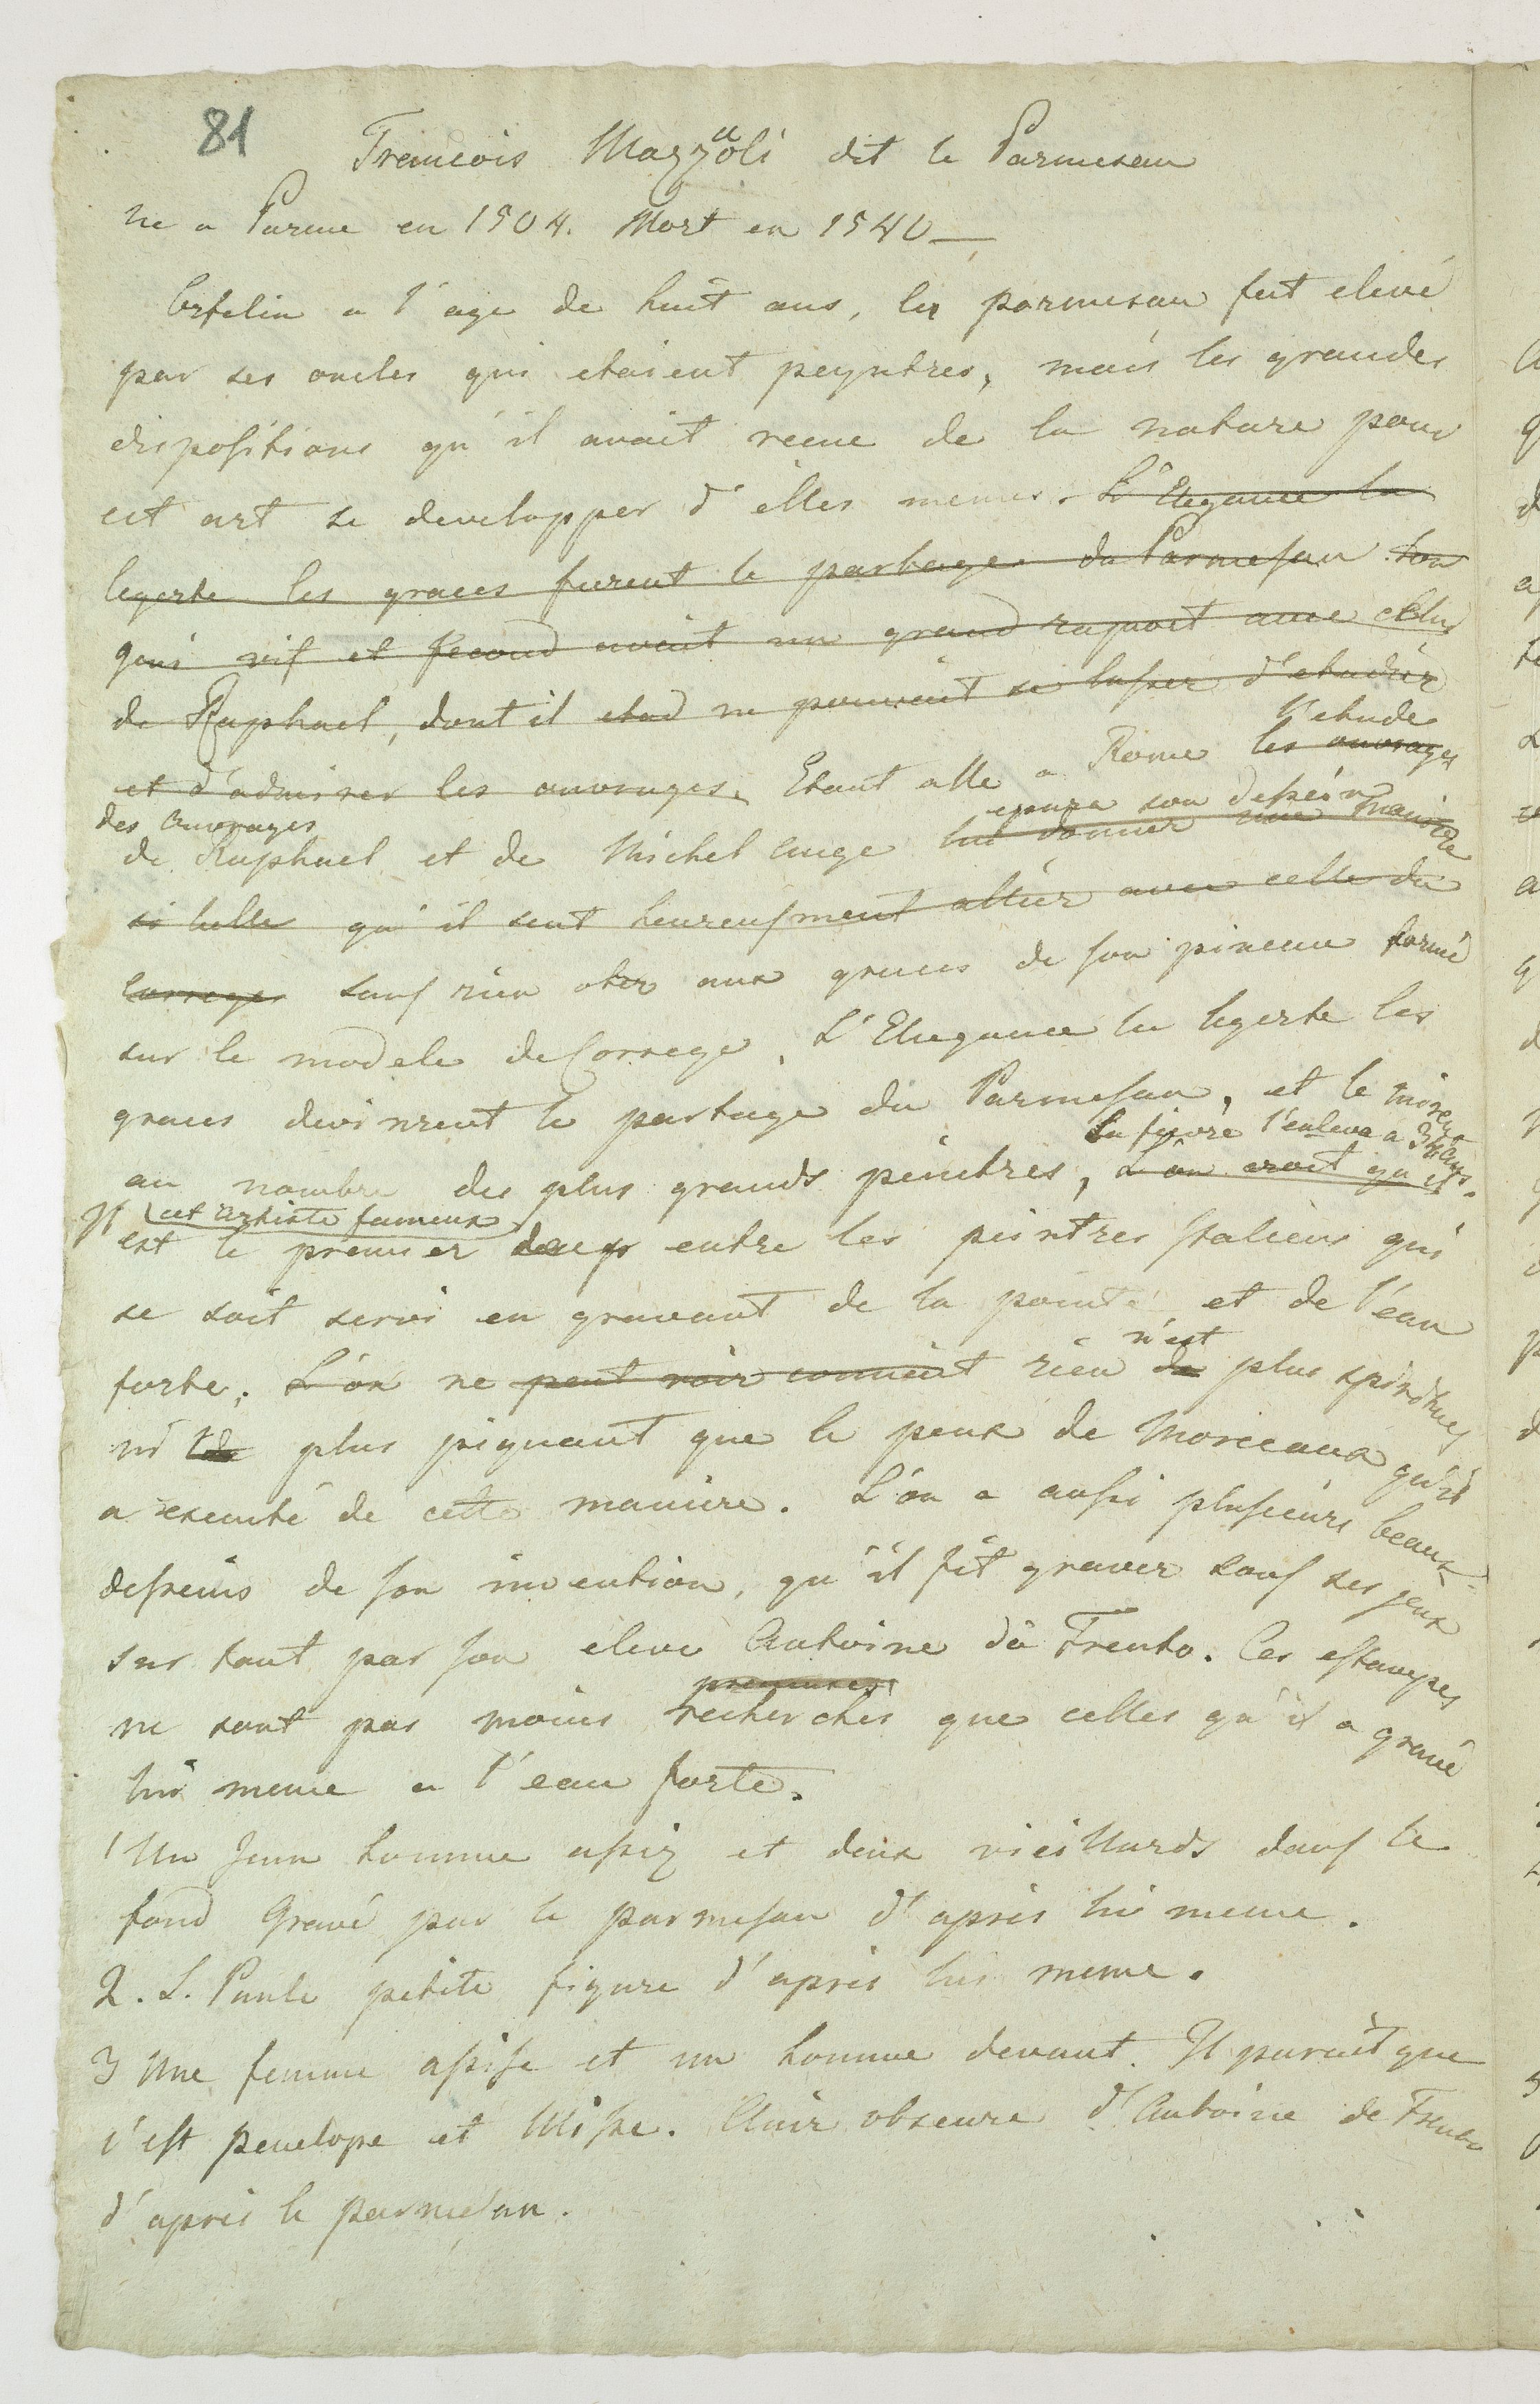 81
Francois Mazzuoli dit le Parmesan
ne a Parme en 1504. Mort en 1540
Orfelin a l'age de huit ans, le parmesan fut elevé
par ses oncles qui etaient peyntres, mais les grandes
dispositions qu'il avait recue de la nature pour
cet art se developper d'elles memes. L'Elegance la
legerte les graces furent le partage du Parmesan son
geni vif et fecond avait un grand raport avec celui
de Raphael, dont il ne pouvait se lasser d'etudier
et d'admirer les ouvrages. Etant alle a Rome les ouvrages
l'etude
des ouvrages
de Raphael et de Michel Ange lui donner une maniere
epura son dessein
si belle qu'il sent heureusment allier avec celle du
Correge sans rien oter aux graces de son pinceau formé
sur le modele de Correge. L'Elegance la legerte les
graces devinrent le partage du Parmesan, et le mirent
au nombre des plus grands peintres, L'on croit qu'il
La fievre l'enleva a 36 ans.
Il cet artiste fameux
est le premier entre les peintres Italiens qui
se soit servi en gravant de la pointe et de l'eau
forte. L'on ne peut voir rien de plus spirituel
n'est
ni de plus piquant que le peux de morceaux qu'il
a executé de cette maniere. L'on a aussi plusieurs beaux
desseins de son invention, qu'il fit graver sous ses yeux
sur tout par son eleve Antoine da Trento. Ces estampes
ne sont pas moins recherches que celles qu'il a gravé
lui meme a l'eau forte.
1 Un Jeun homme assiz et deux vieillards dans le
fond Gravé par le parmesan d'après lui meme.
2. S. Paule petite figure d'apres lui meme.
3 Une femme assise et un homme devant. Il parait que
c'est penelope et Ulisse. Clair obscure d'Antoine de Trento
d'apres le parmesan.